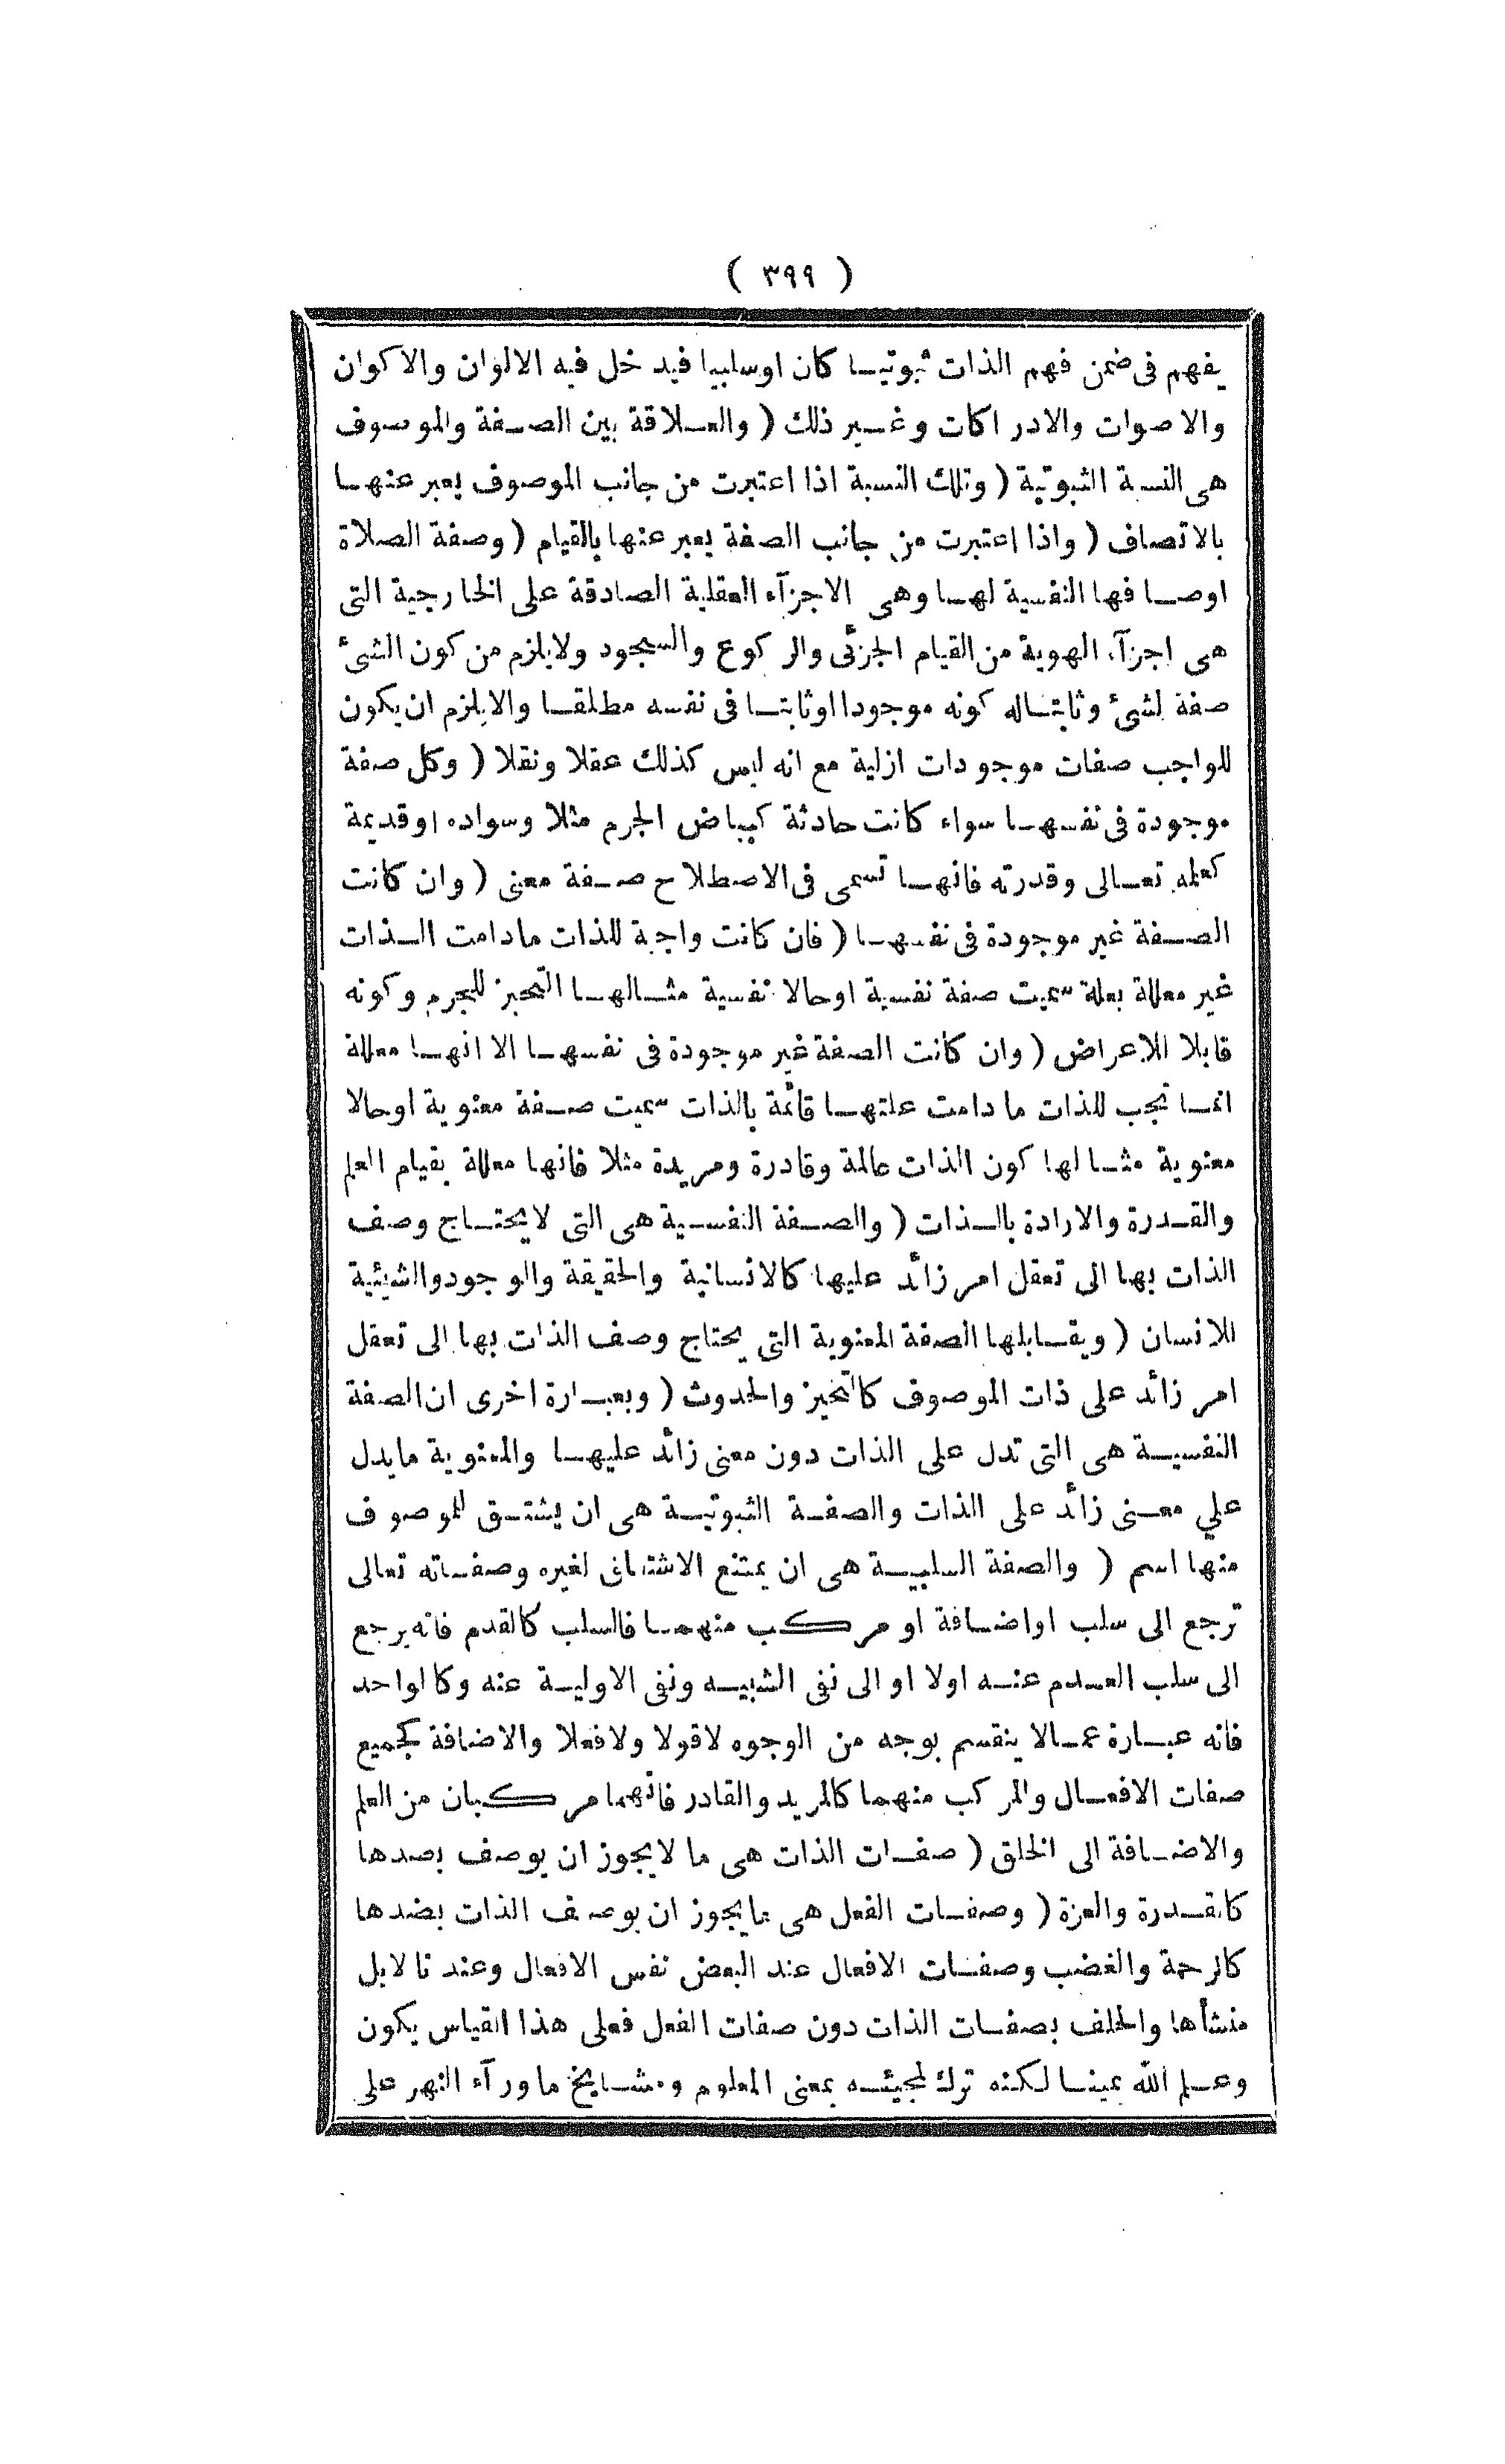 ( ٣٩٩ )
يفهم فى ضمن فهم الذات ثبوتيا كان اوسلبيا فيدخل فيه الالوان والاكوان
والاصوات والادراكات وغير ذلك ( والعلاقة بين الصفة والموصوف
هى النسبة الثبوتية ( وتلك النسبة اذا اعتبرت من جانب الموصوف يعبر عنها
بالاتصاف ( واذا اعتبرت من جانب الصفة يعبر عنها بالقيام ( وصفة الصلاة
اوصافها النفسية لها وهى الاجزآء العقلية الصادقة على الخارجية التى
هى اجزآء الهوية من القيام الجزئى والركوع والسجود ولايلزم من كون الشئ
صفة لشئ وثابتاله كونه موجودا اوثابتا فى نفسه مطلقا والايلزم ان يكون
للواجب صفات موجودات ازلية مع انه ليس كذلك عقلا ونقلا ( وكل صفة
موجودة فى نفسها سواء كانت حادثة كبياض الجرم مثلا وسواده اوقديمة
كعلمه تعالى وقدرته فانها تسمى فى الاصطلاح صفة معنى ( وان كانت
الصفة غير موجودة فى نفسها ( فان كانت واجبة للذات مادامت الذات
غير معللة بعلة سميت صفة نفسية اوحالا نفسية مثالها التحيز للجرم وكونه
قابلا للاعراض ( وان كانت الصفة غير موجودة فى نفسها الا انها معللة
انما تجب للذات مادامت علتها قائمة بالذات سميت صفة معنوية اوحالا
معنوية مثالها كون الذات عالمة وقادرة ومريدة مثلا فانها معللة بقيام العلم
والقدرة والارادة بالذات ( والصفة النفسية هى التى لايحتاج وصف
الذات بها الى تعقل امر زائد عليها كالانسانية والحقيقة والوجود والشيئية
للانسان ( ويقابلها الصفة المعنوية التى يحتاج وصف الذات بها الى تعقل
امر زائد على ذات الموصوف كالتحيز والحدوث ( وبعبارة اخرى ان الصفة
النفسية هى التى تدل على الذات دون معنى زائد عليها والمعنوية مايدل
علي معنى زائد على الذات والصفة الثبوتية هى ان يشتق للموصوف
منها اسم ( والصفة السلبية هى ان يمتنع الاشتقاق لغيره وصفاته تعالى
ترجع الى سلب اواضافة او مركب منهما فالسلب كالقدم فانه يرجع
الى سلب العدم عنه اولا او الى نفى الشبيه ونفى الاولية عنه وكالواحد
فانه عبارة عمالا ينقسم بوجه من الوجوه لاقولا ولافعلا والاضافة كجميع
صفات الافعال والمركب منهما كالمريد والقادر فانهما مركبان من العلم
والاضافة الى الخلق ( صفات الذات هى ما لايجوز ان يوصف بصدها
كالقدرة والعزة ( وصفات الفعل هى مايجوز ان يوصف الذات بضدها
كالرحمة والغضب وصفات الافعال عند البعض نفس الافعال وعندنا لابل
منشأها والحلف بصفات الذات دون صفات الفعل فعلى هذا القياس يكون
وعلم الله يمينا لكنه ترك لمجيئه بمعنى المعلوم ومشايخ ماورآء النهر على